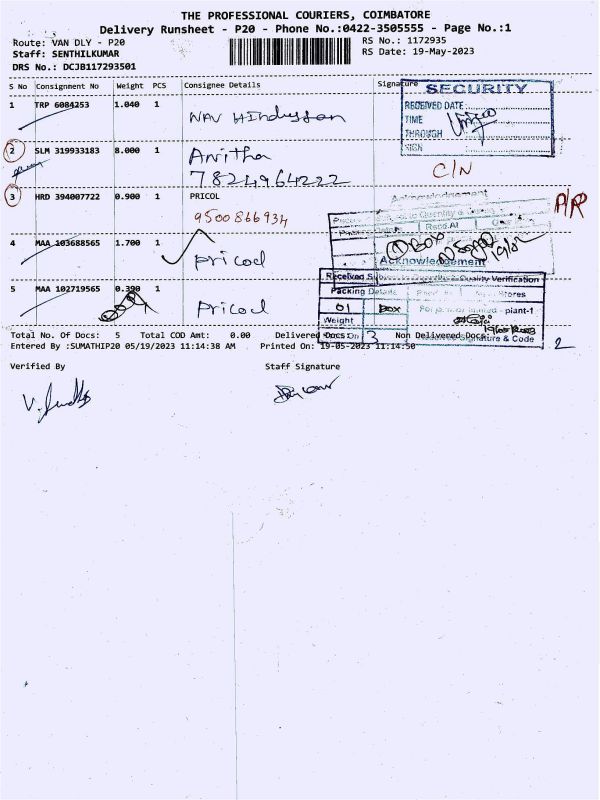 THE PROFESSIONAL COURIERS, COIMBATORE
Delivery Runsheet - P20 - Phone No.:0422-3505555 - Page No.:1
Route: VAN DLY - P20
RS No.: 1172935
Staff: SENTHILKUMAR
RS Date: 19-May-2023
DRS No.: DCJB117293501
S No Consignment No Weight PCS Consignee Details Signature
SECURITY
RECEIVED DATE
TIME
THROUGH
SIGN
1 TRP 6084253 1.040 1 NAV Hindustan
2 SLM 319933183 8.000 1 Anitha
7824964222
C/N
3 HRD 394007722 0.900 1 PRICOL
9500866934
A/R
Acknowledgement
4 MAA 103688565 1.700 1 Pricol
① Box
Acknowledgement
Quality Verification
5 MAA 102719565 0.390 1 Pricol
Packing Details
Stores
01 Box
plant-1
Weight
Signature & Code
Total No. Of Docs: 5 Total COD Amt: 0.00 Delivered Docs: 3 Non Delivered Docs: 2
Entered By :SUMATHIP20 05/19/2023 11:14:38 AM Printed On: 19-05-2023 11:14:50
Verified By Staff Signature